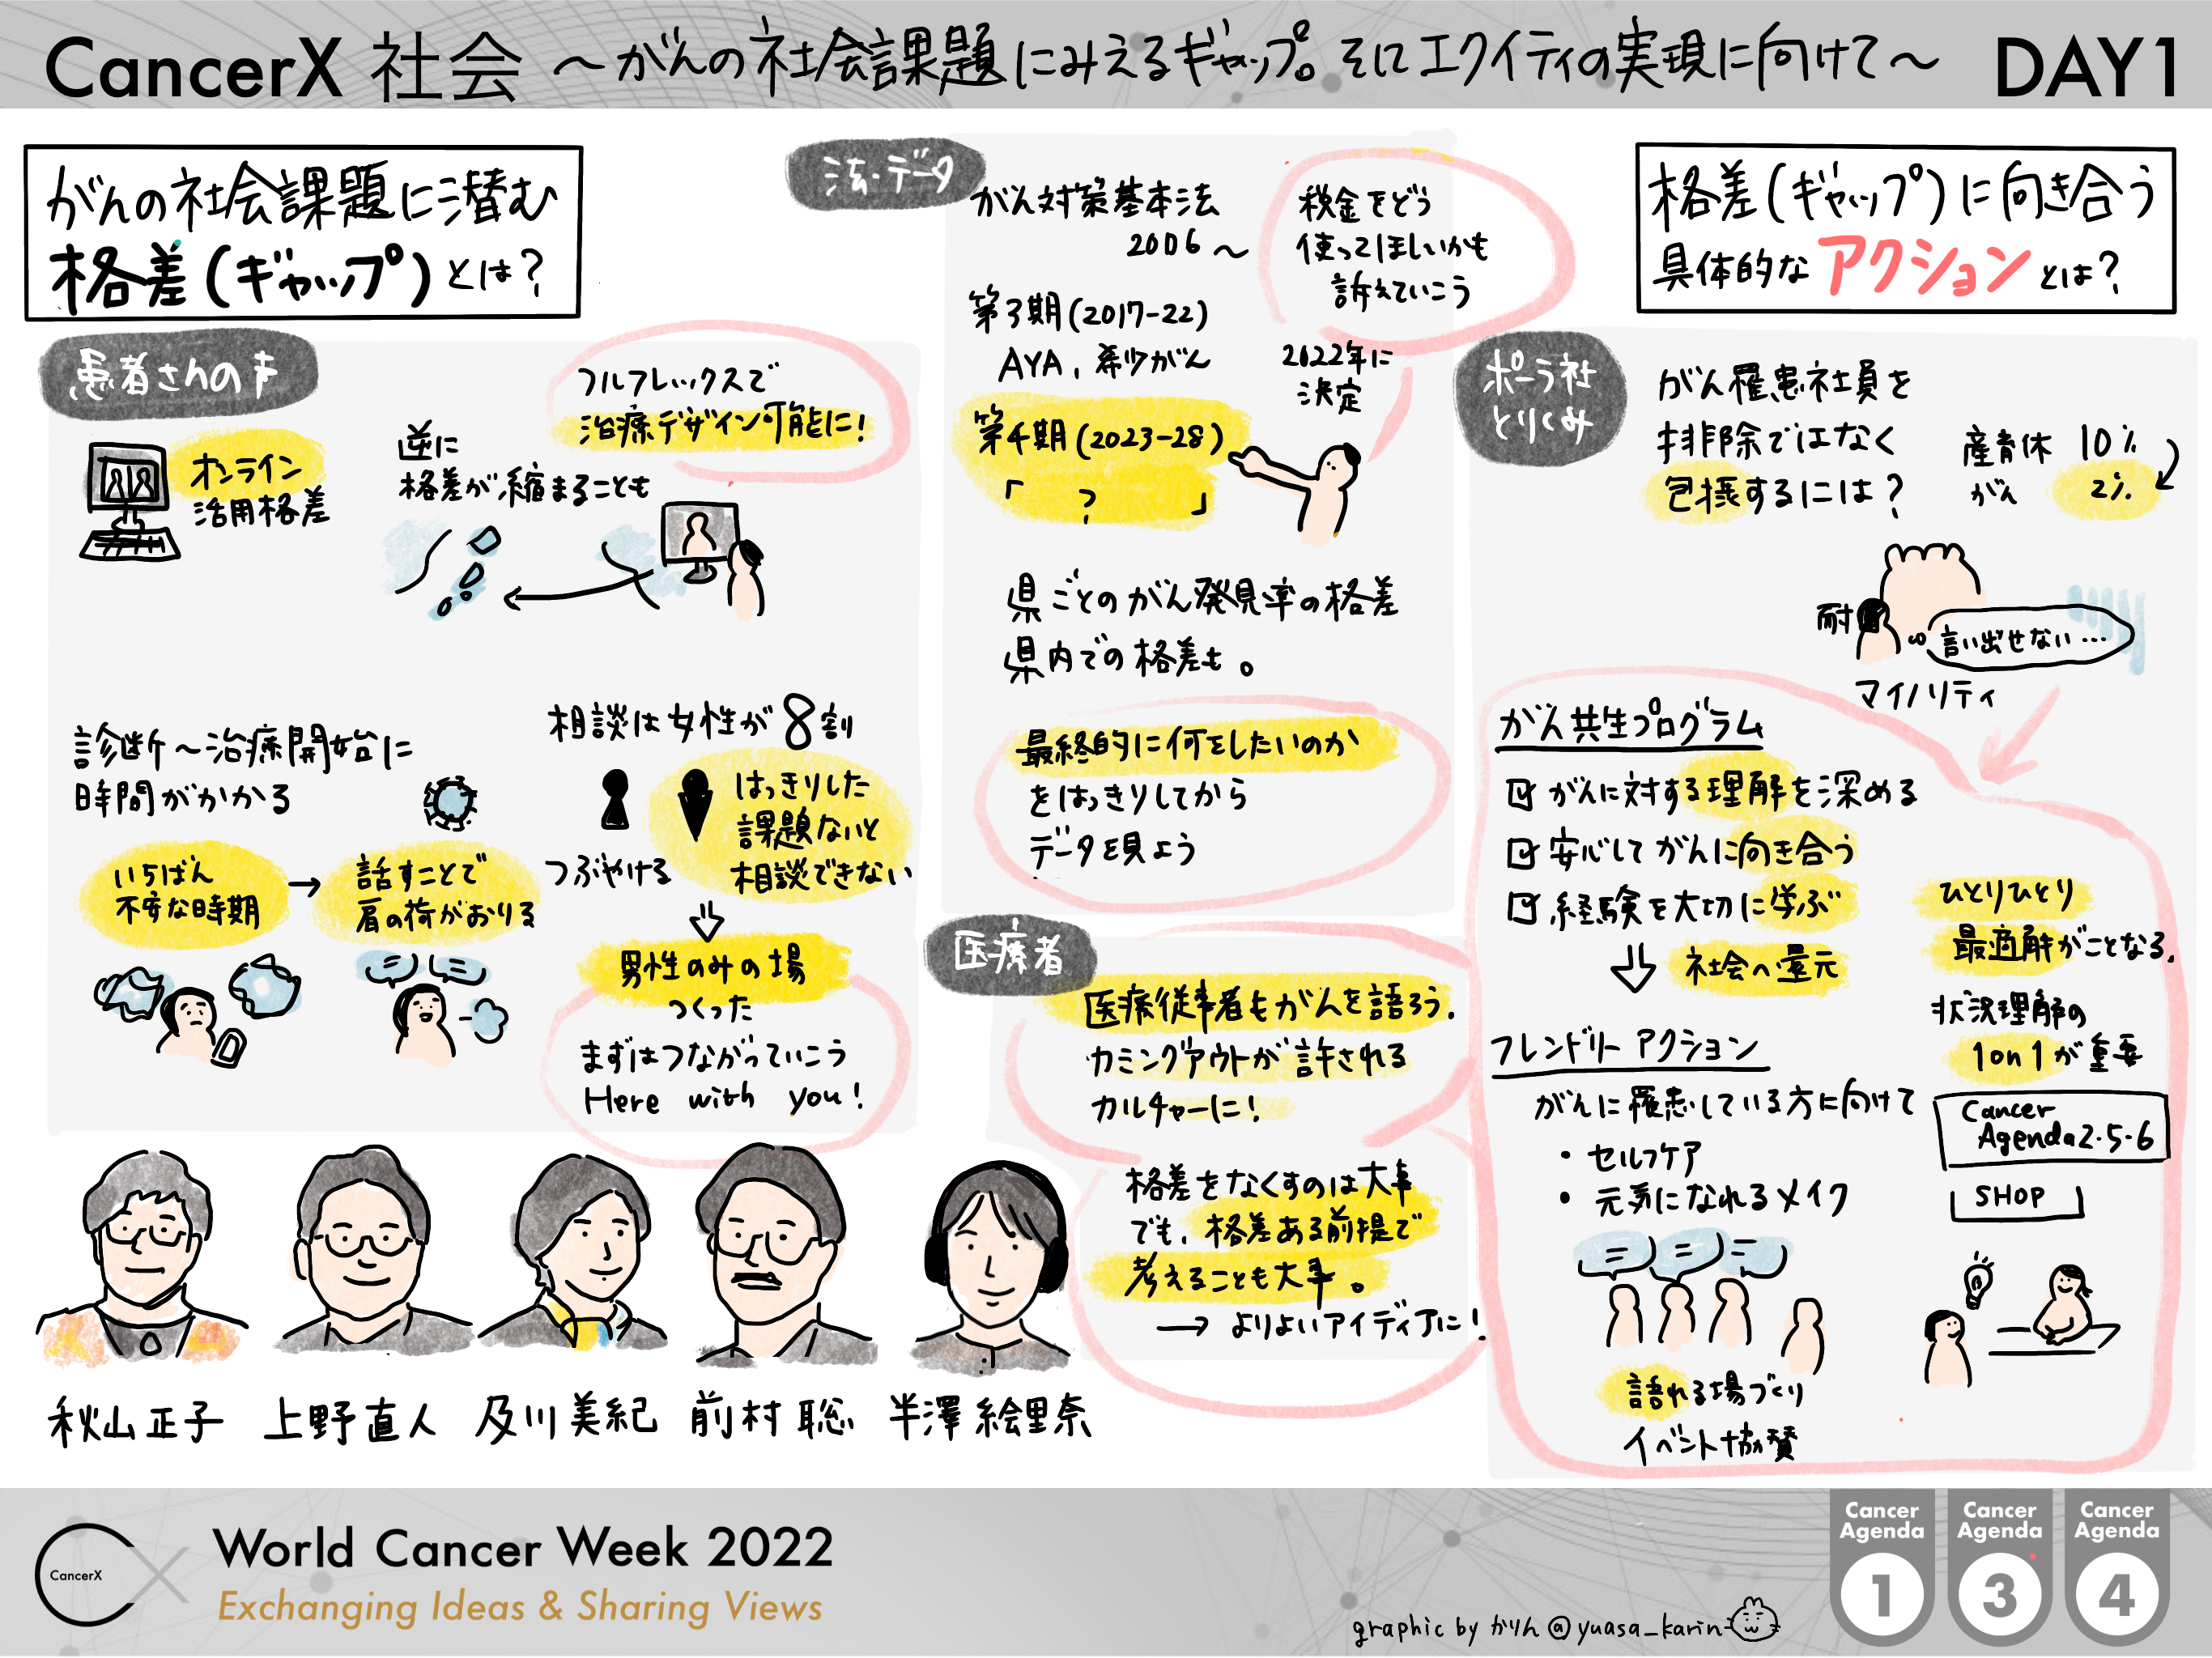 CancerX 社会 〜がんの社会課題にみえるギャップ。そしてエクイティの実現に向けて〜 DAY1
がんの社会課題に潜む
格差(ギャップ)とは?
患者さんの声
オンライン
活用格差
逆に
格差が縮まることも
フルフレックスで
治療デザイン可能に!
診断〜治療開始に
時間がかかる
いちばん
不安な時期
→
話すことで
肩の荷がおりる
相談は女性が8割
つぶやける
はっきりした
課題ないと
相談できない
男性のみの場
つくった
まずはつながっていこう
Here with you!
法・データ
がん対策基本法
2006〜
税金をどう
使ってほしいかも
訴えていこう
第3期(2017-22)
AYA, 希少がん
2022年に
決定
第4期(2023-28)
「 ? 」
県ごとのがん発見率の格差
県内での格差も。
最終的に何をしたいのか
をはっきりしてから
データを見よう
医療者
医療従事者もがんを語ろう.
カミングアウトが許される
カルチャーに!
格差をなくすのは大事
でも、格差ある前提で
考えることも大事。
→ よりよいアイディアに!
格差(ギャップ)に向き合う
具体的なアクションとは?
ポーラ社
とりくみ
がん罹患社員を
排除ではなく
包摂するには?
産育休 10%
がん 2%
耐
言い出せない…
マイノリティ
がん共生プログラム
がんに対する理解を深める
安心してがんに向き合う
経験を大切に学ぶ
社会へ還元
ひとりひとり
最適解がことなる.
状況理解の
1on1が重要
フレンドリーアクション
がんに罹患している方に向けて
・セルフケア
・元気になれるメイク
Cancer
Agenda2・5・6
SHOP
語れる場づくり
イベント協賛
秋山正子 上野直人 及川美紀 前村聡 半澤絵里奈
CancerX
World Cancer Week 2022
Exchanging Ideas & Sharing Views
graphic by かりん @yuasa_karin
Cancer
Agenda
1
Cancer
Agenda
3
Cancer
Agenda
4